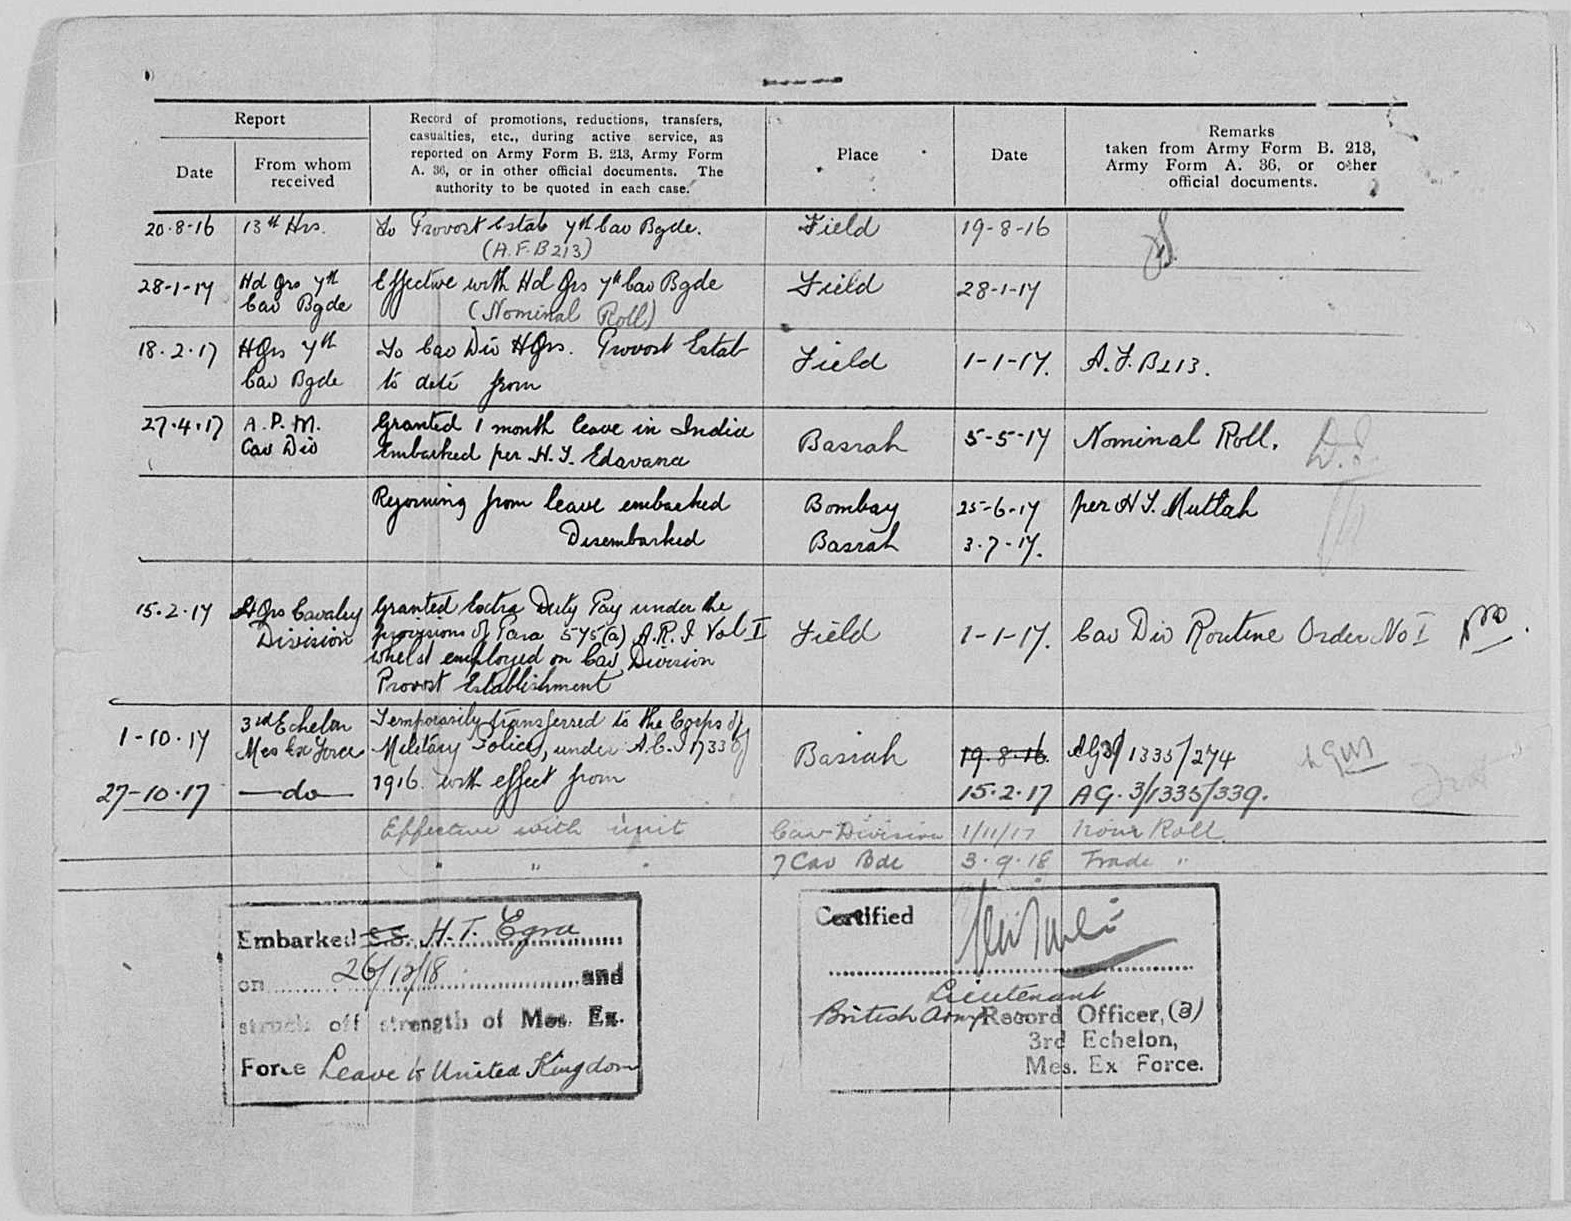 Report
Date
From whom
received
Record of promotions, reductions, transfers,
casualties, etc., during active service, as
reported on Army Form B. 213, Army Form
A. 36, or in other official documents. The
authority to be quoted in each case.
Place
Date
Remarks
taken from Army Form B. 213,
Army Form A. 36, or other
official documents.
20-8-16 13th Hrs. To Provost Estab 7th Cav Bgde. Field 19-8-16
(A.F.B213)
28-1-17 Hd Qrs 7th Effective with Hd Qrs 7th Cav Bgde Field 28-1-17
Cav Bgde (Nominal Roll)
18.2.17 HQrs 7th To Cav Div HQrs. Provost Estab Field 1-1-17. A.F.B213.
Cav Bgde to date from
27.4.17 A.P.M. Granted 1 month leave in India Basrah 5-5-17 Nominal Roll.
Cav Div Embarked per H.T. Edavana
Rejoining from leave embarked Bombay 25-6-17 per H.T. Muttah
Disembarked Basrah 3.7.17.
15.2.17 HQrs Cavalry Granted Extra Duty Pay under the
Division provisions of Para 575(a) A.R.I Vol I Field 1-1-17. Cav Div Routine Order No I
whilst employed on Cav Division
Provost Establishment
1-10-17 3rd Echelon Temporarily transferred to the Corps of
Mes Ex Force Military Police, under A.C.I 1733 of Basrah 19.8.16 AG3/1335/274
27-10-17 —do— 1916 with effect from 15.2.17 AG.3/1335/339.
Effective with unit Cav Division 1/11/17 Roll
" " " 7 Cav Bde 3.9.18 Trade "
Embarked S.S. H.T. Egra
on 26/12/18 and
struck off strength of Mes. Ex.
Force Leave to United Kingdom
Certified
Lieutenant
British Army Record Officer, (a)
3rd Echelon,
Mes. Ex Force.